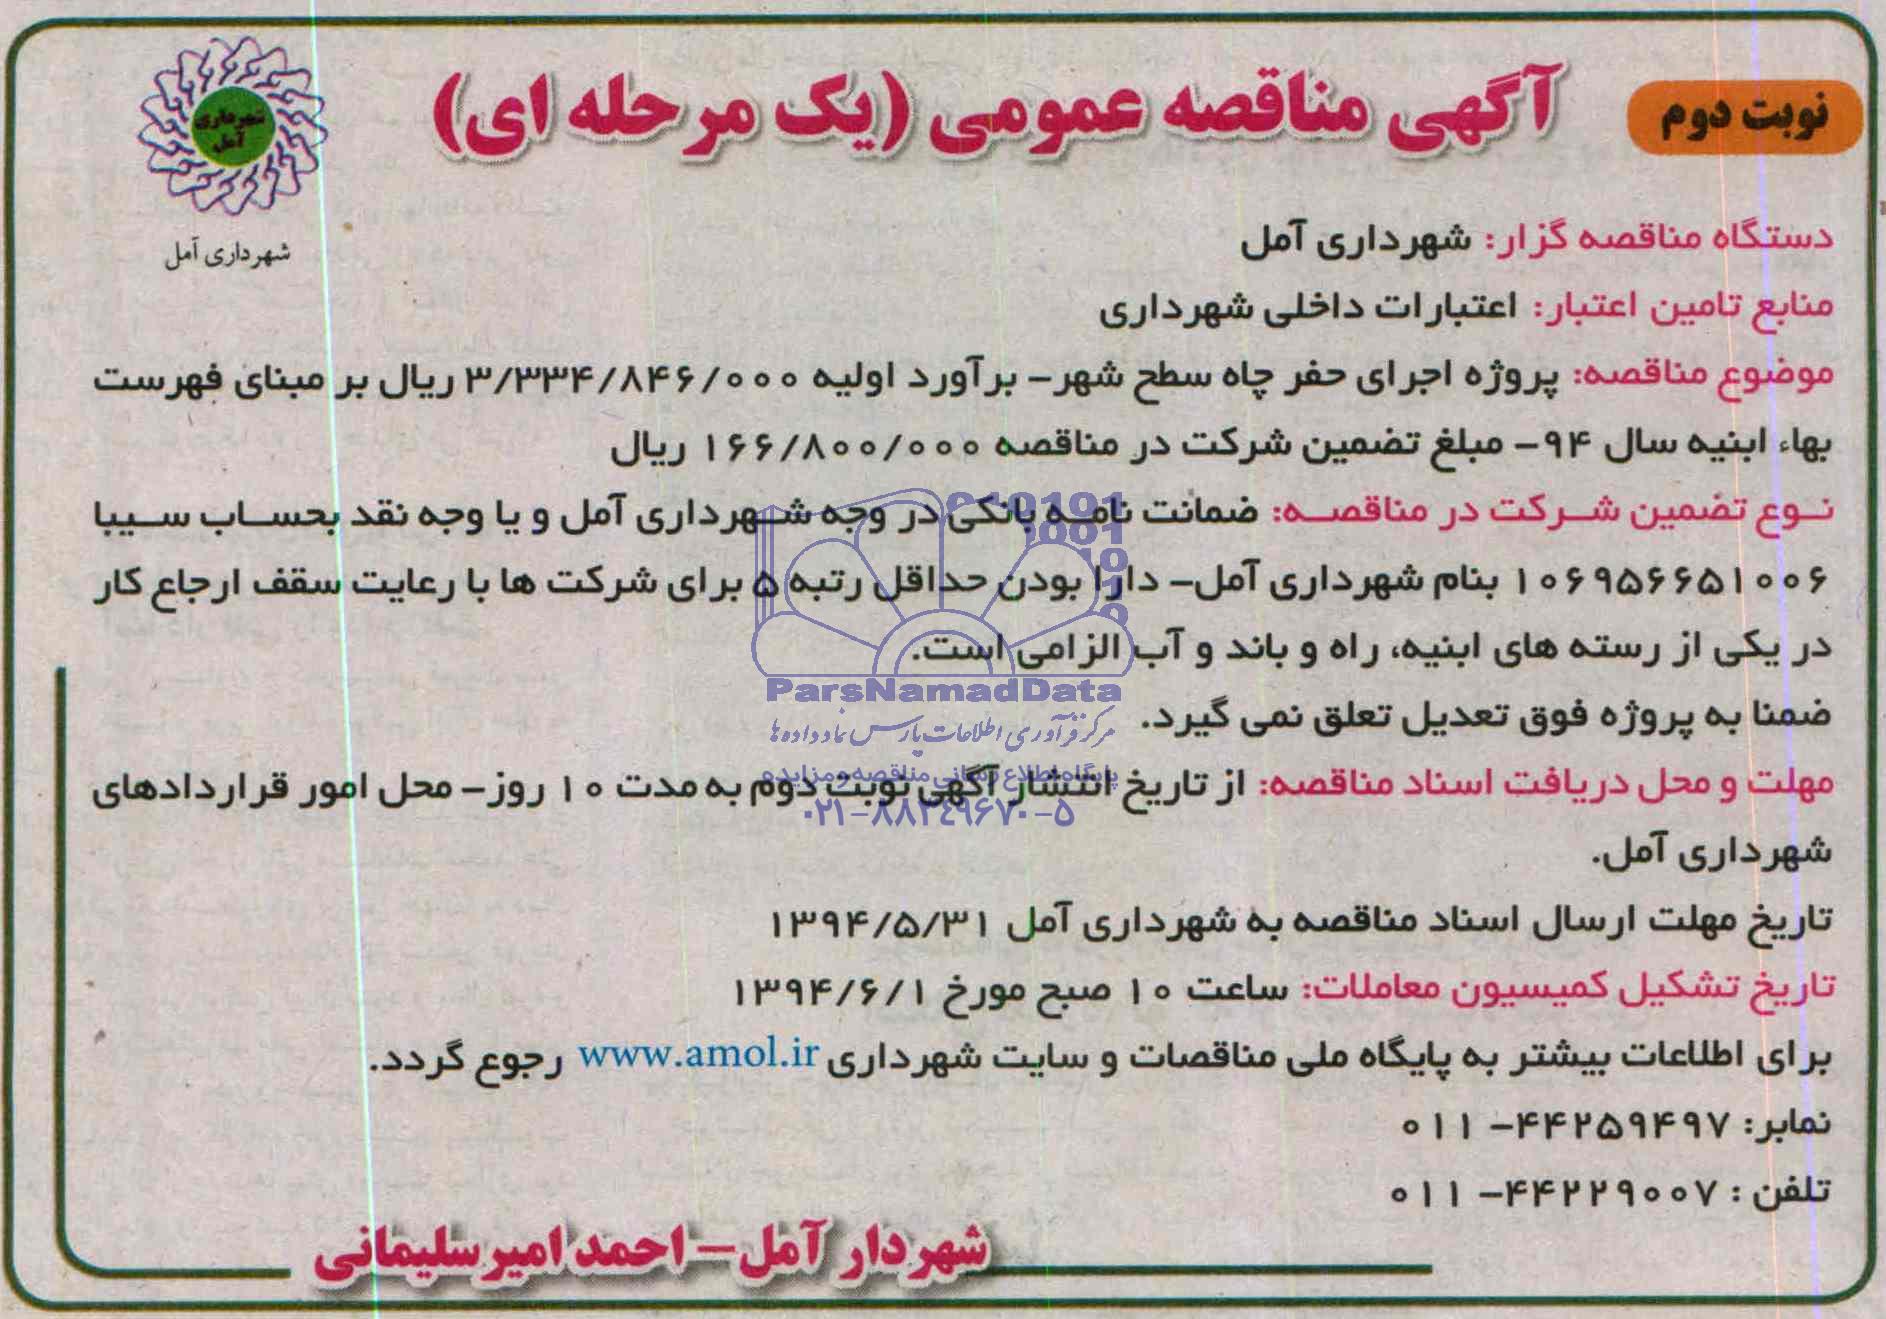 نوبت دوم
آگهی مناقصه عمومی (یک مرحله ای)
شهرداری آمل
شهرداری آمل
دستگاه مناقصه گزار: شهرداری آمل
منابع تامین اعتبار: اعتبارات داخلی شهرداری
موضوع مناقصه: پروژه اجرای حفر چاه سطح شهر– برآورد اولیه ۳/۳۳۴/۸۴۶/۰۰۰ ریال بر مبنای فهرست
بهاء ابنیه سال ۹۴– مبلغ تضمین شرکت در مناقصه ۱۶۶/۸۰۰/۰۰۰ ریال
نوع تضمین شرکت در مناقصه: ضمانت نامه بانکی در وجه شهرداری آمل و یا وجه نقد بحساب سیبا
۱۰۶۹۵۶۶۵۱۰۰۶ بنام شهرداری آمل– دارا بودن حداقل رتبه ۵ برای شرکت ها با رعایت سقف ارجاع کار
در یکی از رسته های ابنیه، راه و باند و آب الزامی است.
ضمنا به پروژه فوق تعدیل تعلق نمی گیرد.
مهلت و محل دریافت اسناد مناقصه: از تاریخ انتشار آگهی نوبت دوم به مدت ۱۰ روز– محل امور قراردادهای
شهرداری آمل.
تاریخ مهلت ارسال اسناد مناقصه به شهرداری آمل ۱۳۹۴/۵/۳۱
تاریخ تشکیل کمیسیون معاملات: ساعت ۱۰ صبح مورخ ۱۳۹۴/۶/۱
برای اطلاعات بیشتر به پایگاه ملی مناقصات و سایت شهرداری www.amol.ir رجوع گردد.
نمابر: ۴۴۲۵۹۴۹۷– ۰۱۱
تلفن : ۴۴۲۲۹۰۰۷– ۰۱۱
شهردار آمل– احمد امیرسلیمانی
ParsNamadData
مرکز فرآوری اطلاعات پارس نماد داده ها
پایگاه اطلاع رسانی مناقصه و مزایده
۰۲۱–۸۸۳۴۹۶۷۰–۵